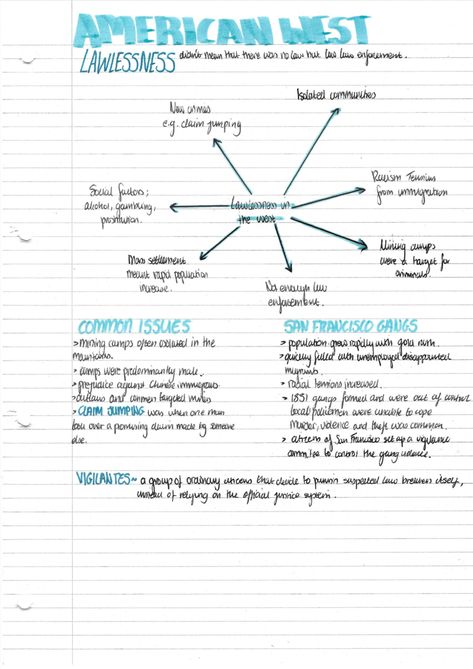 AMERICAN WEST
LAWLESSNESS didn't mean that there was no law but low law enforcement.
Isolated communities
New crimes
e.g. claim jumping
Social factors;
alcohol, gambling,
prostitution.
Lawlessness in
the west
Racism Tensions
from immigration
Mining camps
were a target for
criminals.
Mass settlement
meant rapid population
increase.
Not enough law
enforcement.
COMMON ISSUES
> mining camps often isolated in the
mountains.
> camps were predominantly male.
> prejudice against Chinese immigrants
> outlaws and conmen targeted mines
> CLAIM JUMPING was when one man
took over a promising claim made by someone
else.
SAN FRANCISCO GANGS
> population grew rapidly with gold rush.
> quickly filled with unemployed disappointed
migrants.
> racial tensions increased.
> 1851 gangs formed and were out of control
local policemen were unable to cope
murder, violence and theft was common.
> citizens of San Francisco set up a vigilance
committee to control the gang violence.
VIGILANTES~ a group of ordinary citizens that decide to punish suspected law breakers itself,
instead of relying on the official justice system.